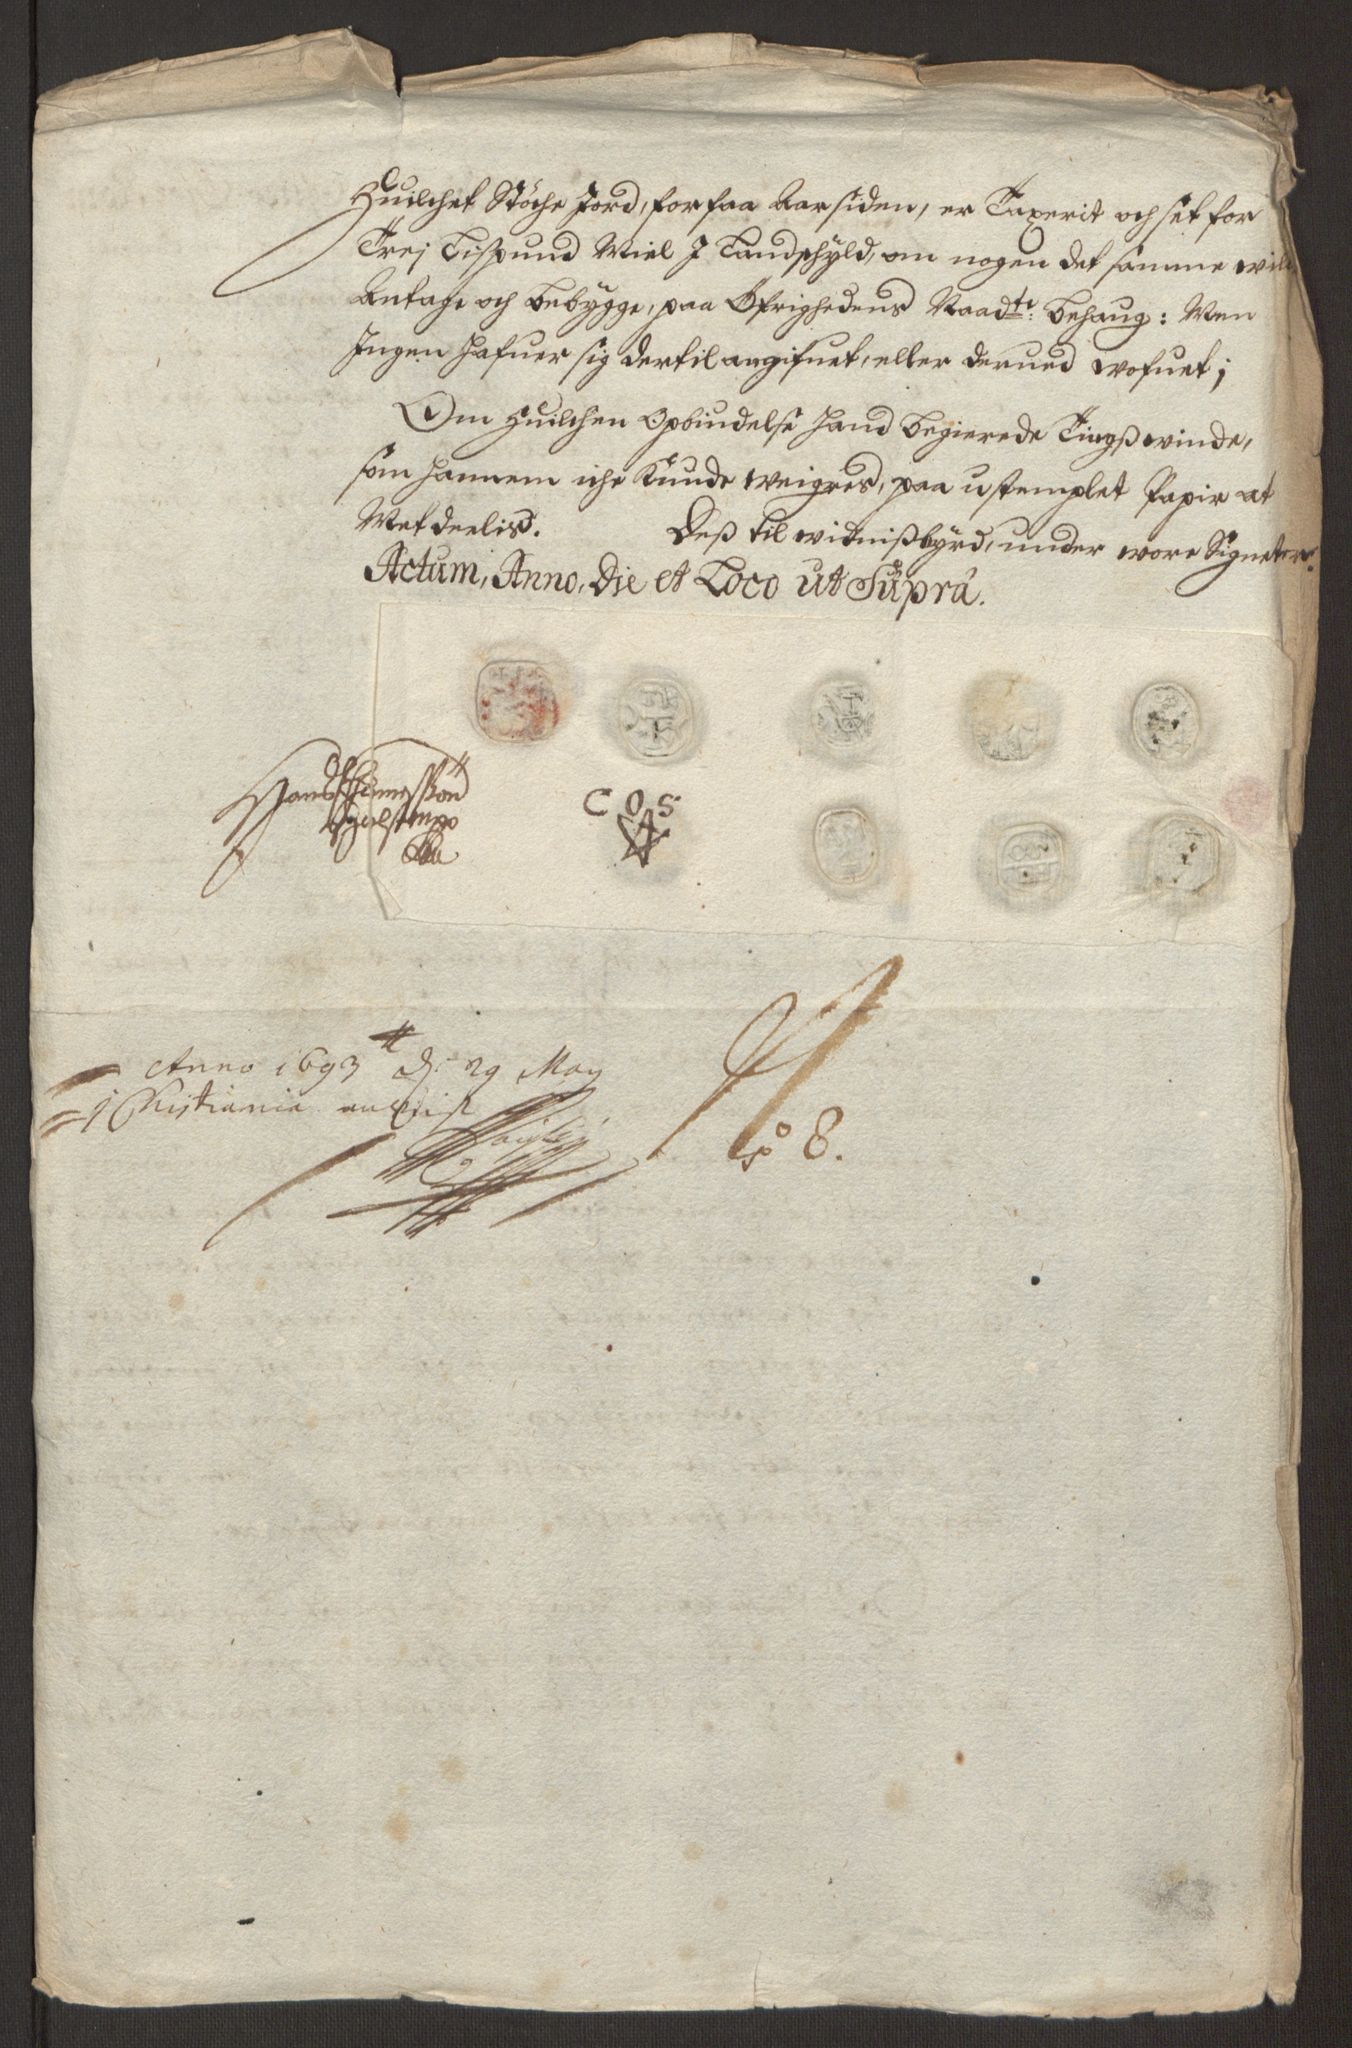 Huilchet Støche Jord, for faa Aar siden, er Taxerit och set for
Trej Lispund Miel J Landschyld, om nogen det samme wille
Antage och bebygge, paa Øfrighedens Naad^te: behaug: Men
Jngen hafuer sig dertil angifuet, eller derued wofuet;
Om huilchen Opbiudelse hand begierede Tingsswinde,
som hannem iche Kunde weigres, paa ustemplet Papir at
Metdeelis. Dess til widnissbyrd, under wore Signeter.
Actum, Anno, Die et Loco ut Suprá.
C O S
Anno 1693 d: 29 May
J Christiania
No 8.